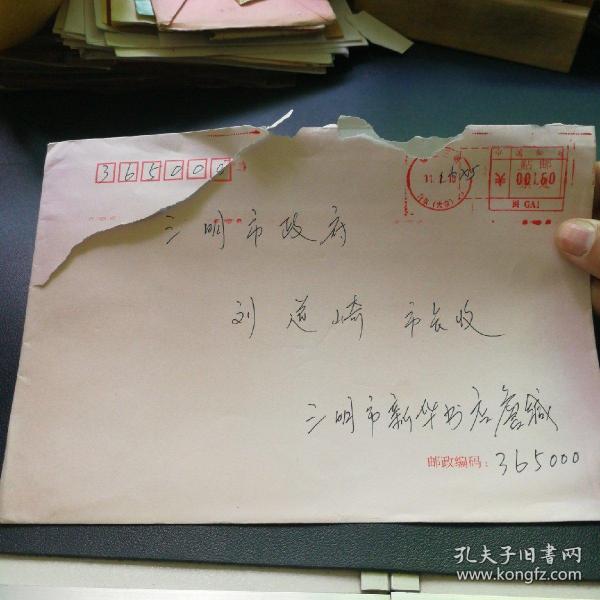 365000
三明市政府
刘道崎 市长收
三明市新华书店詹缄
邮政编码：365000
闽 GA1
孔夫子旧书网
www.kongfz.com